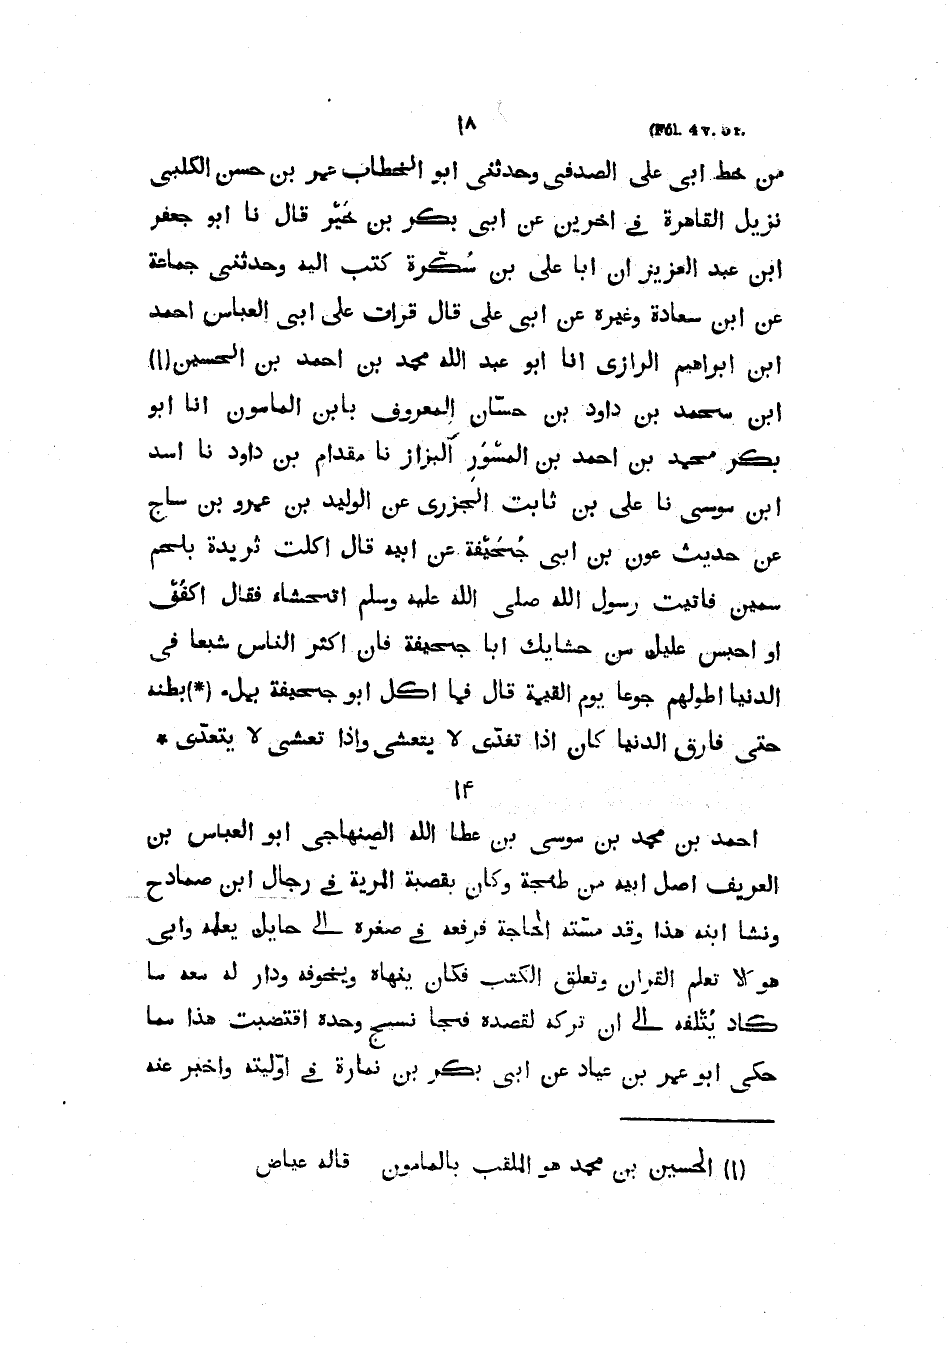 ١٨ (Fól. 4 v. 5 r.
من خط ابى على الصدفى وحدثنى ابو الخطاب عمر بن حسن الكلبى
نزيل القاهرة فى اخرين عن ابى بكر بن خَيْر قال نا ابو جعفر
ابن عبد العزيز ان ابا على بن سُكّرة كتب اليه وحدثنى جماعة
عن ابن سعادة وغيره عن ابى على قال قرات على ابى العباس احمد
ابن ابراهيم الرازى انا ابو عبد الله محمد بن احمد بن الحسين(١)
ابن محمد بن داود بن حسّان المعروف بابن المامون انا ابو
بكر محمد بن احمد بن المسْوَر البزاز نا مقدام بن داود نا اسد
ابن موسى نا على بن ثابت الجزرى عن الوليد بن عمرو بن ساج
عن حديث عون بن ابى جُحَيْفة عن ابيه قال اكلت ثريدة بلحم
سمين فاتيت رسول الله صلى الله عليه وسلم اتجشاء فقال اكفُفْ
او احبس عليك من جشايك ابا جحيفة فان اكثر الناس شبعا فى
الدنيا اطولهم جوعا يوم القيمة قال فما اكل ابو جحيفة بمله (*)بطنه
حتى فارق الدنيا كان اذا تغدّى لا يتعشى واذا تعشى لا يتعدّى *
١۴
احمد بن محمد بن موسى بن عطا الله الصنهاجى ابو العباس بن
العريف اصل ابيه من طنجة وكان بقصبة المرية فى رجال ابن صمادح
ونشا ابنه هذا وقد مسّته الحاجة فرفعه فى صغره الى حايك يعلمه وابى
هو الا تعلم القران وتعلق الكتب فكان ينهاه ويخوفه ودار له معه ما
كاد يُتْلفه الى ان تركه لقصده فجا نسيج وحدة اقتضبت هذا مما
حكى ابو عمر بن عياد عن ابى بكر بن نمارة فى اوّليته واخبر عنه
(١) الحسين بن محمد هو الملقب بالمامون قاله عياض